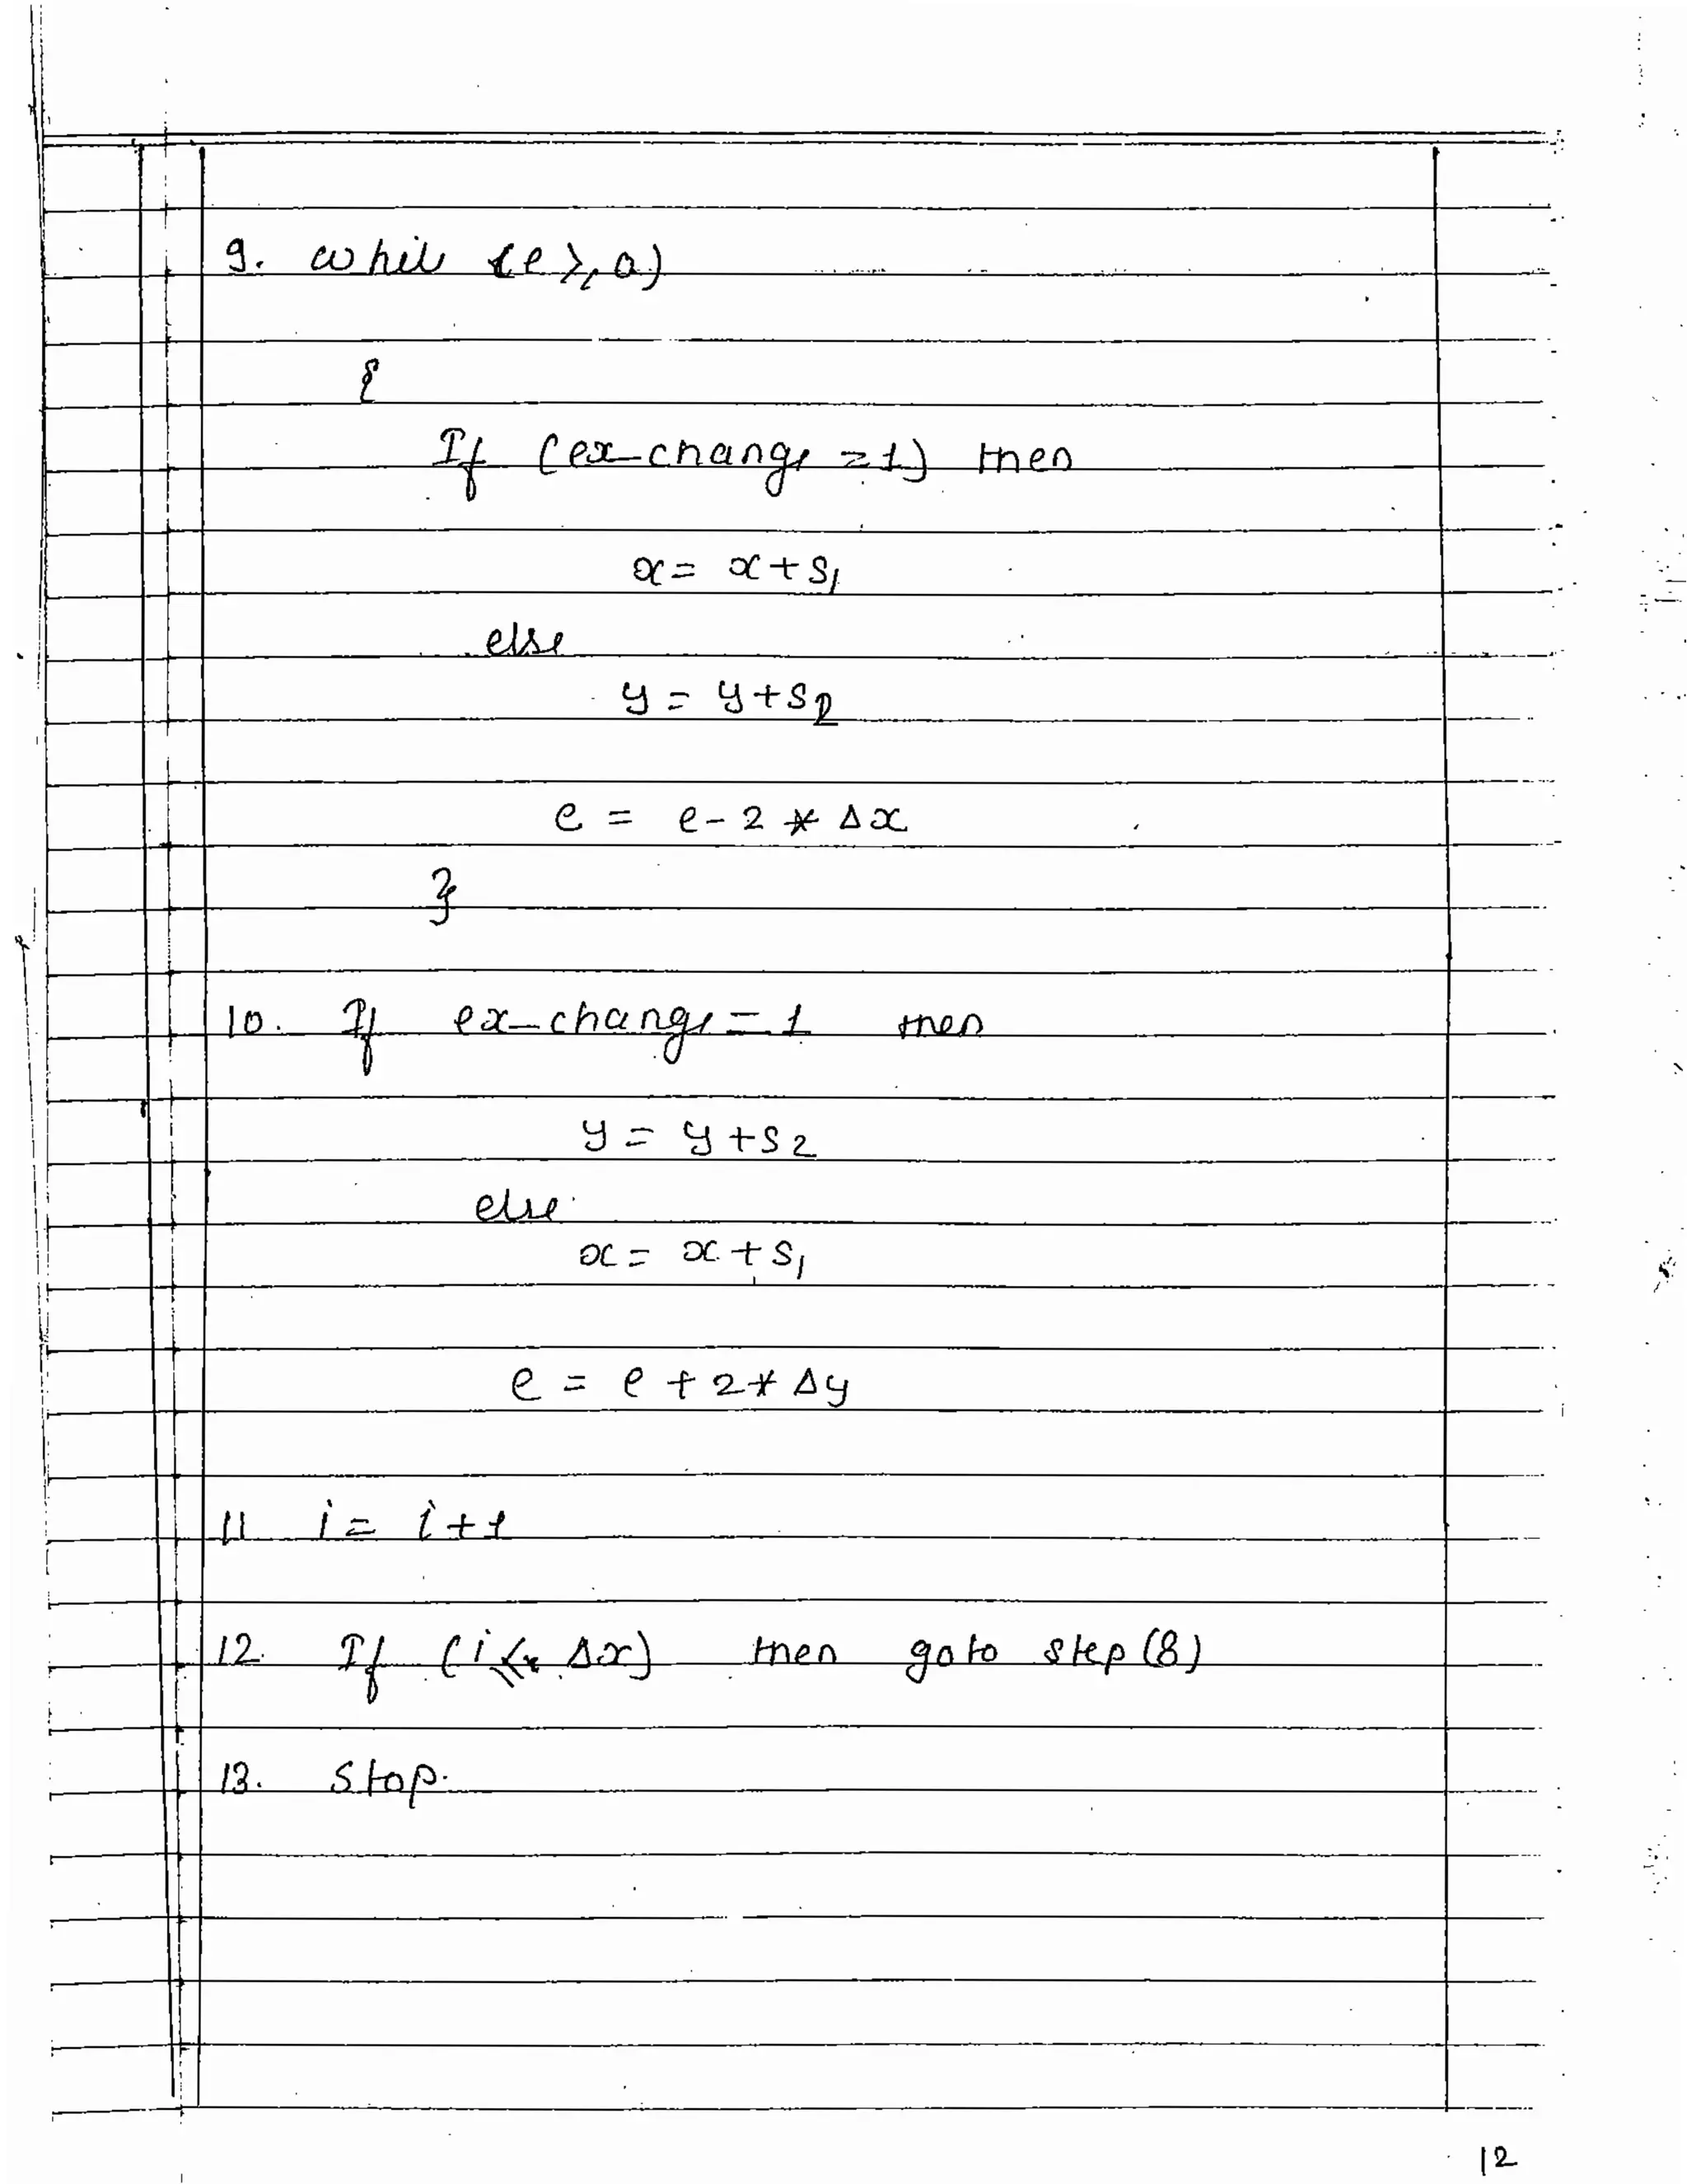 9. while (e ≥ 0)
{
If (ex-change = 1) then
x = x + S1
else
y = y + S2
e = e - 2 * Δx
}
10. If ex-change = 1 then
y = y + S2
else
x = x + S1
e = e + 2 * Δy
11 i = i + 1
12. If (i ≤ Δx) then goto step (8)
13. Stop.
12